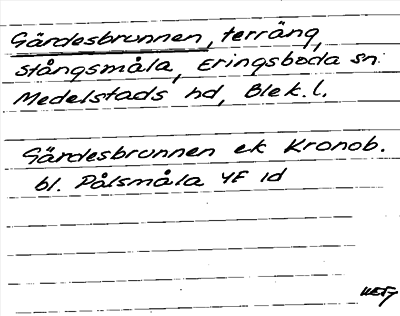 Gärdesbrunnen, terräng,
Stångsmåla, Eringsboda sn.
Medelstads hd, Blek.l.
Gärdesbrunnen ek Kronob.
bl. Pålsmåla 4F 1d